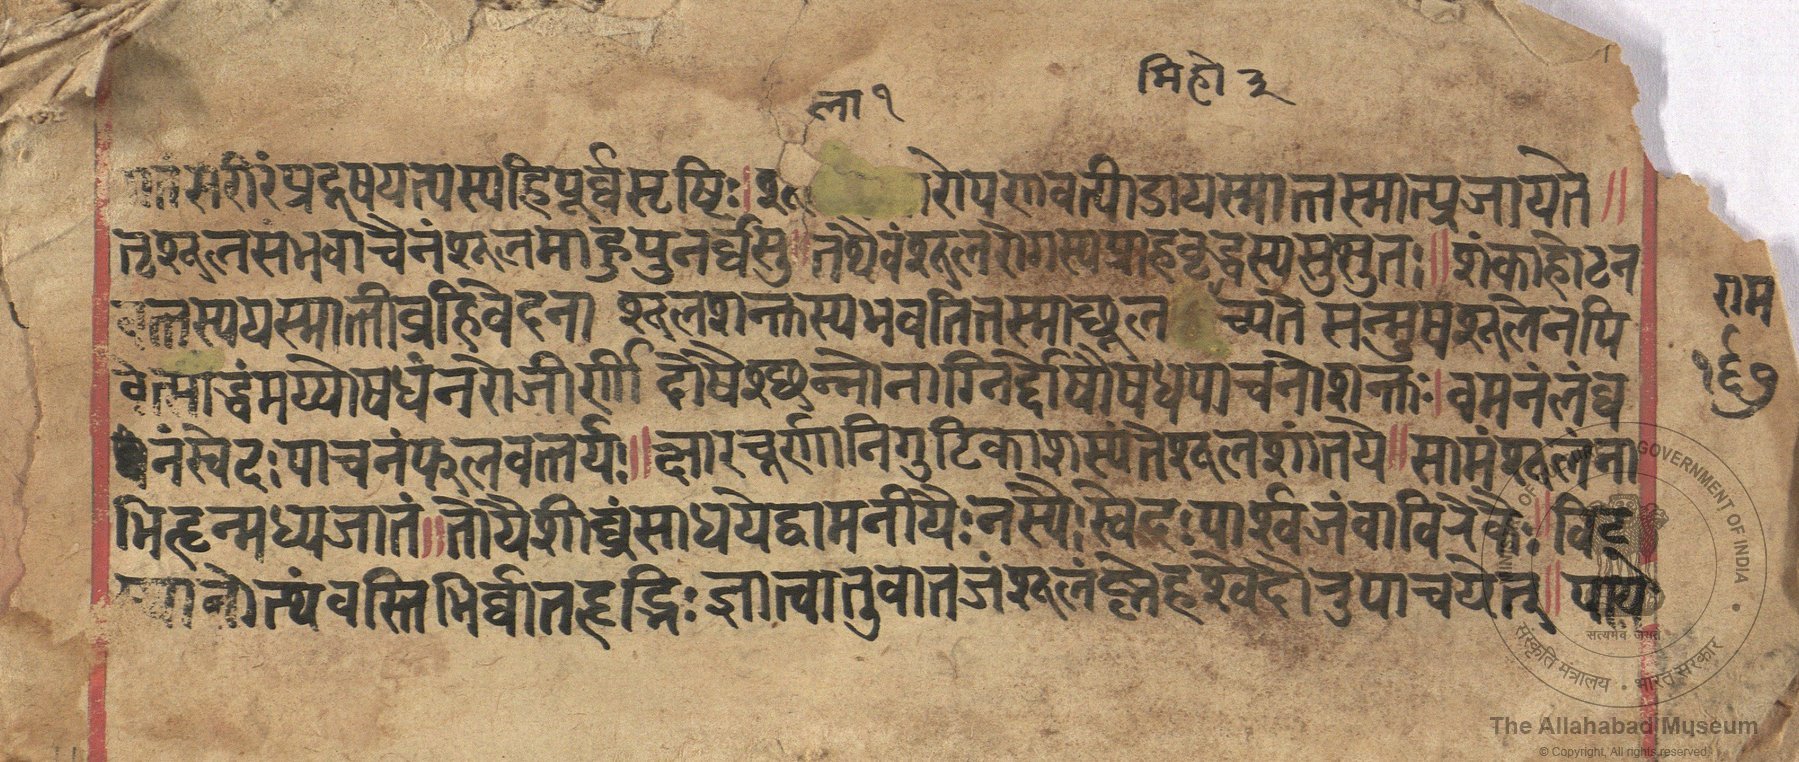 मिहो ३
ला १
सरीरंप्रदूषयत्यस्यहिपूर्व्वसृष्टिः। रोपरावत्पीडायस्मात्तस्मात्प्रजायते॥
तृश्शूलसंभवाचैनंश्शूलमाहुपुनर्व्वसु॥ तथैवंश्शूलरोगस्यप्राहवृद्धस्यसुश्रुतः॥ शंकास्फोटन
स्ययस्मात्तीव्राहिवेदना श्शूलशक्तस्यभवतितस्माछूल च्यते सन्मुषश्शूलेनपि
मय्यौषधंनरोजीर्णी दोषैश्छन्नोनाग्निर्द्दोषौषधपाचनोशक्तः। वमनंलंघ
नंस्वेदःपाचनंफलवलर्यः॥ क्षारचूर्णानिगुटिकाशस्यंतेश्शूलशांतये॥ सामंश्शूलंना
भिहृन्मध्यजातं॥ तोयैशीघ्रंसाधयेद्वामनीयैः नस्यैःस्वेदःपार्श्वजंवाविरेकैः॥ विदृ
त्थंवस्तिभिर्व्वातहृद्भिः ज्ञात्वातुवातजंश्शूलंस्नेहश्वेदौनुपाचयेत्॥ पाये
राम
१६७
MINISTRY OF CULTURE GOVERNMENT OF INDIA
सत्यमेव जयते
संस्कृति मंत्रालय • भारत सरकार
The Allahabad Museum
© Copyright, All rights reserved